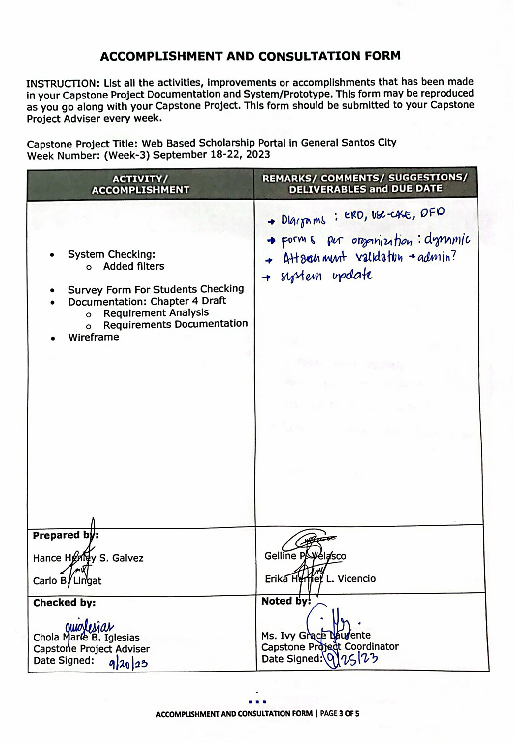 ACCOMPLISHMENT AND CONSULTATION FORM
INSTRUCTION: List all the activities, improvements or accomplishments that has been made
in your Capstone Project Documentation and System/Prototype. This form may be reproduced
as you go along with your Capstone Project. This form should be submitted to your Capstone
Project Adviser every week.
Capstone Project Title: Web Based Scholarship Portal in General Santos City
Week Number: (Week-3) September 18-22, 2023
ACTIVITY/
ACCOMPLISHMENT
• System Checking:
o Added filters
• Survey Form For Students Checking
• Documentation: Chapter 4 Draft
o Requirement Analysis
o Requirements Documentation
• Wireframe
REMARKS/ COMMENTS/ SUGGESTIONS/
DELIVERABLES and DUE DATE
→ Diagrams : ERD, USE-CASE, DFD
→ Forms per organization : dynamic
→ Attachment validation → admin?
→ system update
Prepared by:
Hance Henrey S. Galvez
Carlo B. Lingat
Gelline P. Velasco
Erika Harriet L. Vicencio
Checked by:
Chola Marie B. Iglesias
Capstone Project Adviser
Date Signed: 9/20/23
Noted by:
Ms. Ivy Grace Laurente
Capstone Project Coordinator
Date Signed: 9/25/23
ACCOMPLISHMENT AND CONSULTATION FORM | PAGE 3 OF 5